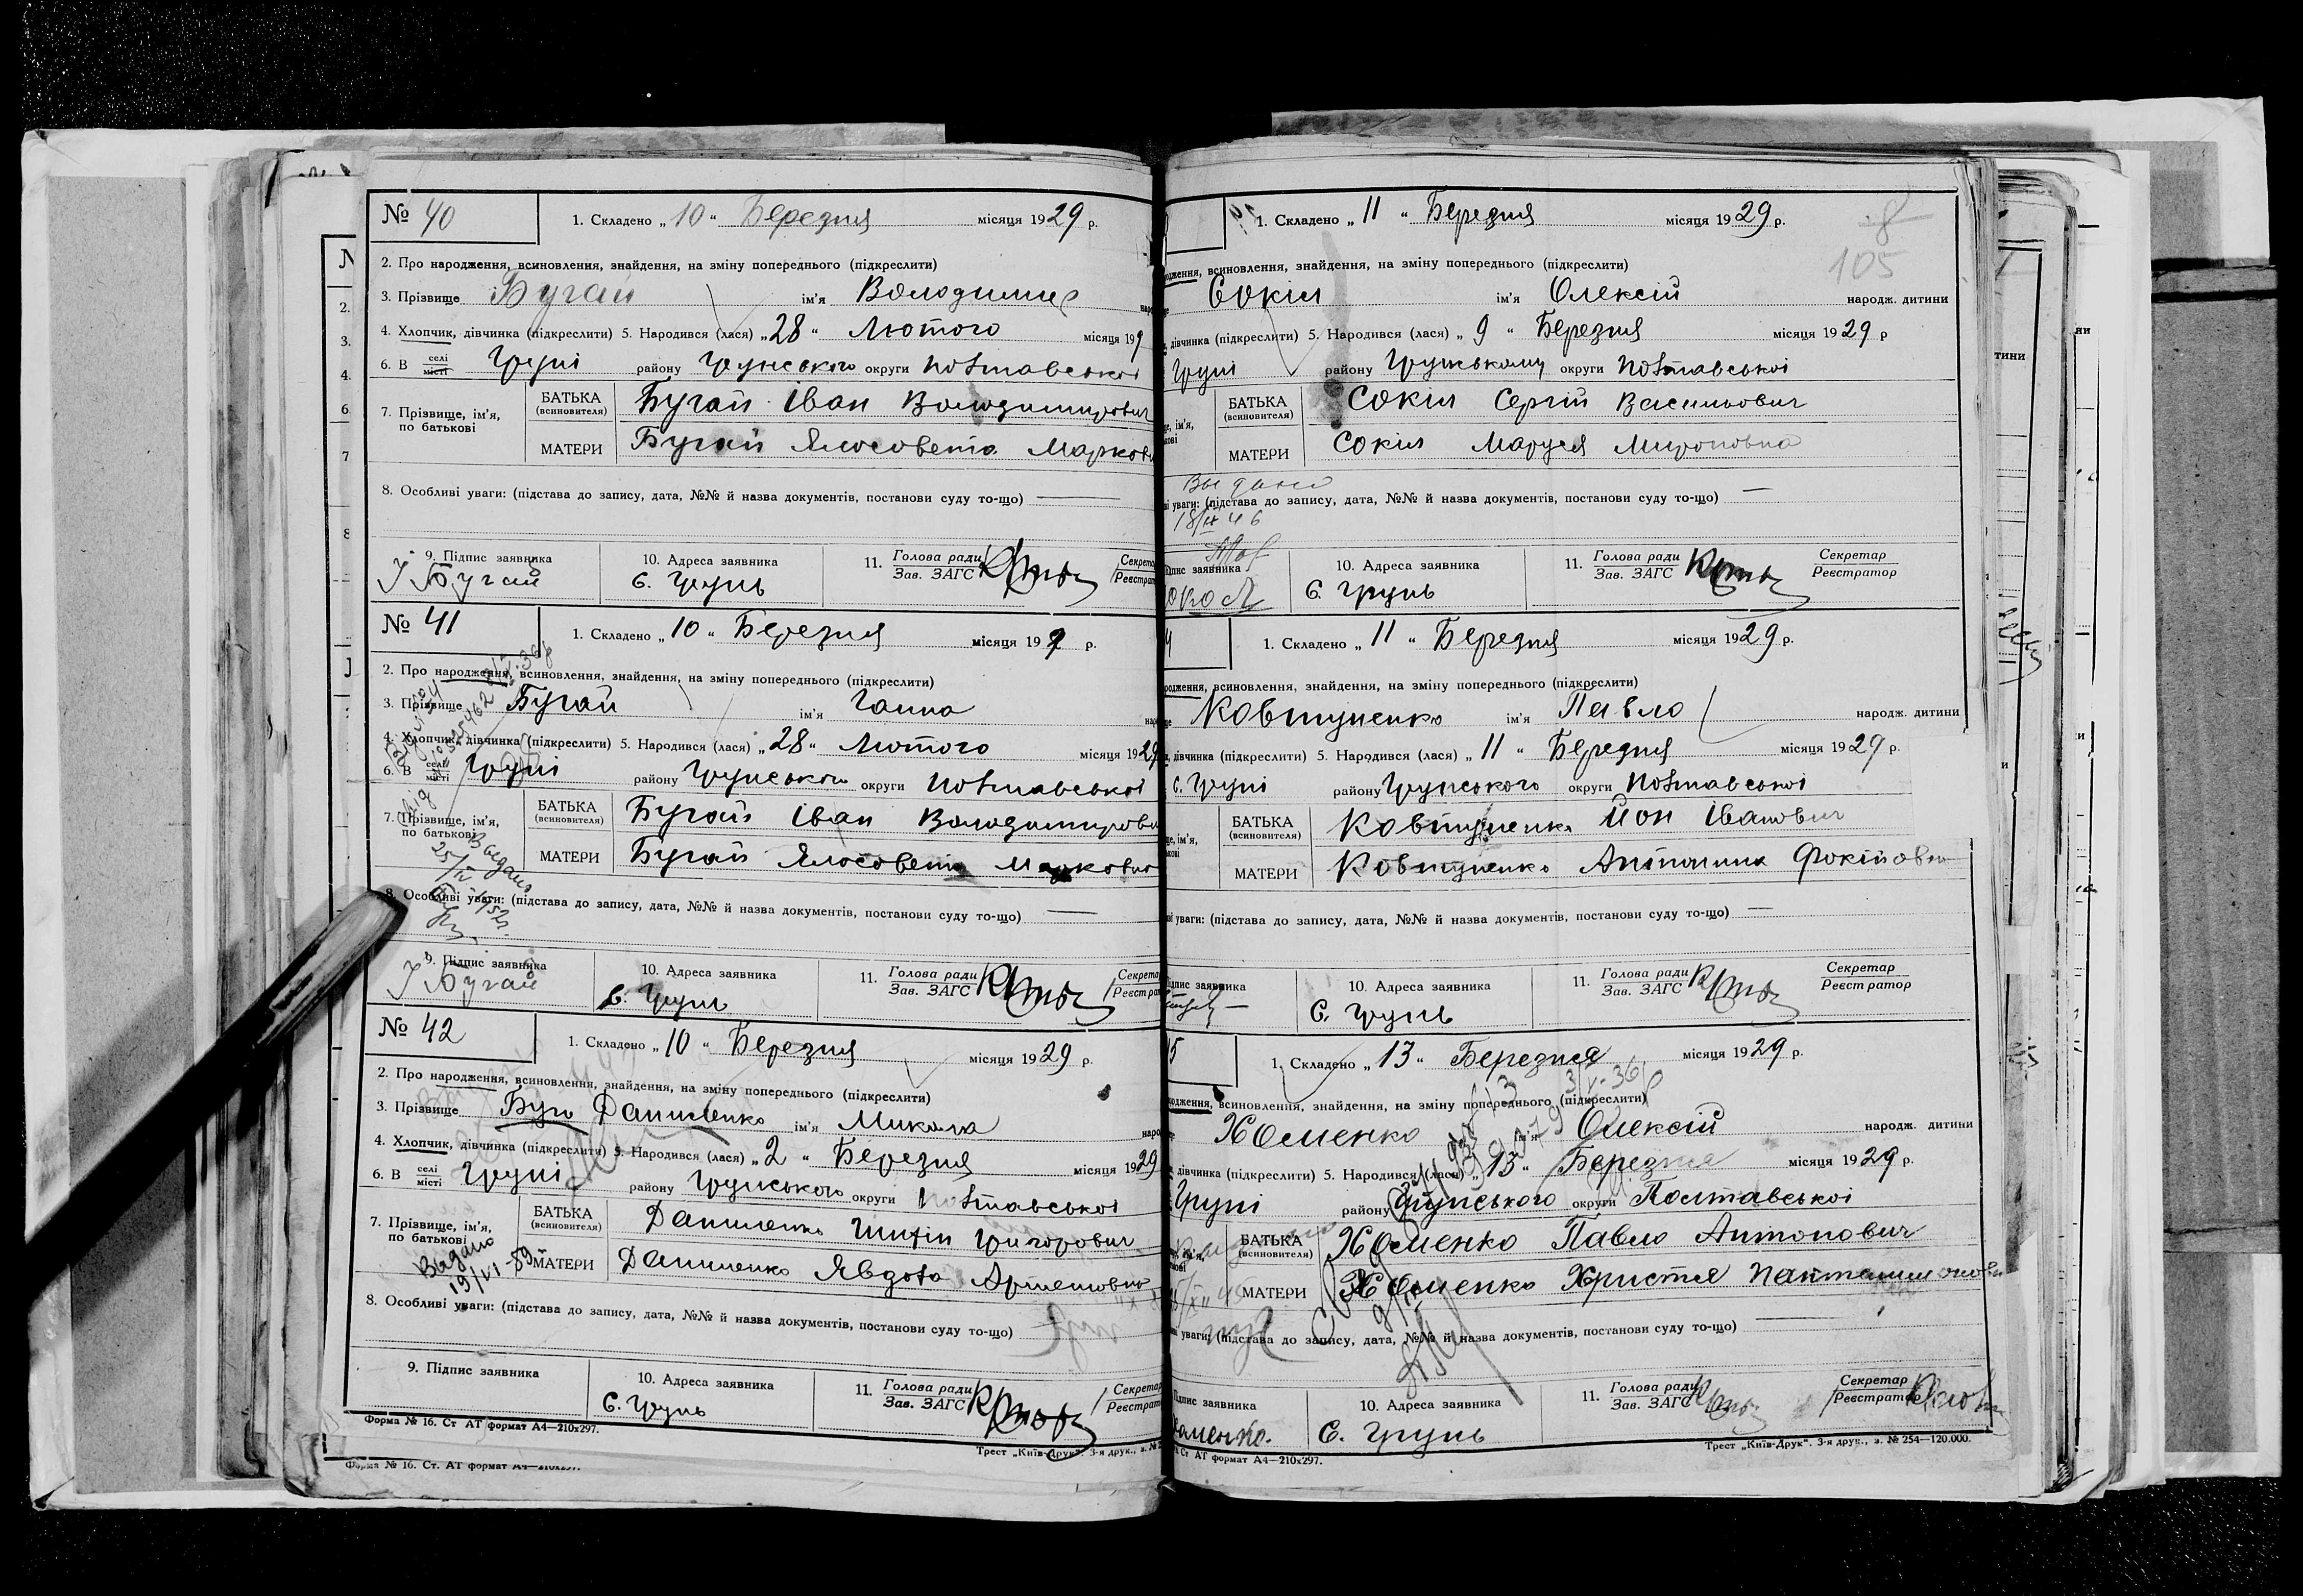 № 40
1. Складено „10“ Березня місяця 1929 р.
2. Про народження, всиновлення, знайдення, на зміну попереднього (підкреслити)
3. Прізвище Бугай ім'я Володимир
4. Хлопчик, дівчинка (підкреслити) 5. Народився (лася) „28“ Лютого місяця 19
6. В селі місті Груні району Грунського округи Полтавської
7. Прізвище, ім'я, по батькові
БАТЬКА (всиновителя) Бугай Іван Володимирович
МАТЕРИ Бугай Ялосовета Марковн
8. Особливі уваги: (підстава до запису, дата, №№ й назва документів, постанови суду то-що)
9. Підпис заявника 10. Адреса заявника 11. Голова ради Зав. ЗАГС
І Бугай С. Грунь
№ 41
1. Складено „10“ Березня місяця 19 р.
2. Про народження, всиновлення, знайдення, на зміну попереднього (підкреслити)
3. Прізвище Бугай ім'я Ганна
4. Хлопчик, дівчинка (підкреслити) 5. Народився (лася) „28“ Лютого місяця 1929
6. В селі місті Груні району Грунського округи Полтавської
7. Прізвище, ім'я, по батькові
БАТЬКА (всиновителя) Бугай Іван Володимирови
МАТЕРИ Бугай Ялосовета Марковн
Выдано
25/IV
8. Особливі уваги: (підстава до запису, дата, №№ й назва документів, постанови суду то-що)
9. Підпис заявника 10. Адреса заявника 11. Голова ради Зав. ЗАГС
І Бугай С. Грунь
№ 42
1. Складено „10“ Березня місяця 1929 р.
2. Про народження, всиновлення, знайдення, на зміну попереднього (підкреслити)
3. Прізвище Даниленко ім'я Микола
4. Хлопчик, дівчинка (підкреслити) 5. Народився (лася) „2“ Березня місяця 1929
6. В селі місті Груні району Грунського округи Полтавської
7. Прізвище, ім'я, по батькові
БАТЬКА (всиновителя) Даниленко Григорович
МАТЕРИ Даниленко Явдоха
Выдано
19/VI-59
8. Особливі уваги: (підстава до запису, дата, №№ й назва документів, постанови суду то-що)
9. Підпис заявника 10. Адреса заявника 11. Голова ради Зав. ЗАГС
С. Грунь
Форма № 16. Ст АТ формат А4—210х297.
Трест „Київ-Друк“. 3-я друк., з. №
Форма № 16. Ст. АТ формат А4—210х297.
105
1. Складено „11“ Березня місяця 1929 р.
всиновлення, знайдення, на зміну попереднього (підкреслити)
Сокіл ім'я Олексій народж. дитини
дівчинка (підкреслити) 5. Народився (лася) „9“ Березня місяця 1929 р
Груні району Грунському округи Полтавської
БАТЬКА (всиновителя) Сокіл Сергій Васильович
МАТЕРИ Сокіл Маруся Мироновна
уваги: (підстава до запису, дата, №№ й назва документів, постанови суду то-що)
заявника 10. Адреса заявника 11. Голова ради Зав. ЗАГС Секретар Реєстратор
С. Грунь
1. Складено „11“ Березня місяця 1929 р.
всиновлення, знайдення, на зміну попереднього (підкреслити)
Ковтуненко ім'я Павло народж. дитини
дівчинка (підкреслити) 5. Народився (лася) „11“ Березня місяця 1929 р.
с. Груні району Грунського округи Полтавської
БАТЬКА (всиновителя) Ковтуненко Йон Іванович
МАТЕРИ Ковтуненко Антонина Фокіївна
уваги: (підстава до запису, дата, №№ й назва документів, постанови суду то-що)
заявника 10. Адреса заявника 11. Голова ради Зав. ЗАГС Секретар Реєстратор
С. Грунь
1. Складено „13“ Березня місяця 1929 р.
всиновлення, знайдення, на зміну попереднього (підкреслити)
Хоменко ім'я Олексій народж. дитини
дівчинка (підкреслити) 5. Народився (лася) „13“ Березня місяця 1929 р.
Груні району Грунського округи Полтавської
БАТЬКА (всиновителя) Хоменко Павло Антонович
МАТЕРИ Хоменко Христя
уваги: (підстава до запису, дата, №№ й назва документів, постанови суду то-що)
заявника 10. Адреса заявника 11. Голова ради Зав. ЗАГС Секретар Реєстратор
С. Грунь
Ст АТ формат А4—210х297.
Трест „Київ-Друк“. 3-я друк., з. № 254—120.000.